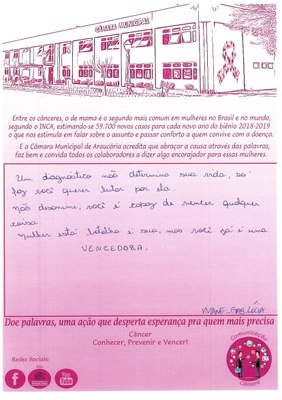 CÂMARA MUNICIPAL
Entre os cânceres, o de mama é o segundo mais comum em mulheres no Brasil e no mundo,
segundo o INCA, estimando-se 59.700 novos casos para cada novo ano do biênio 2018-2019
o que nos estimula em falar sobre o assunto e passar conforto a quem convive com a doença.
E a Câmara Municipal de Araucária acredita que abraçar a causa através das palavras,
faz bem e convida todos os colaboradores a dizer algo encorajador para essas mulheres.
Um diagnóstico não determina sua vida, só
faz você querer lutar por ela.
Não desanime, você é capaz de vencer qualquer
coisa.
Mulher está batalha é sua, mas você já é uma
VENCEDORA.
Doe palavras, uma ação que desperta esperança pra quem mais precisa
Câncer
Conhecer, Prevenir e Vencer!
Redes Sociais:
You Tube
Comunicação
Câmara